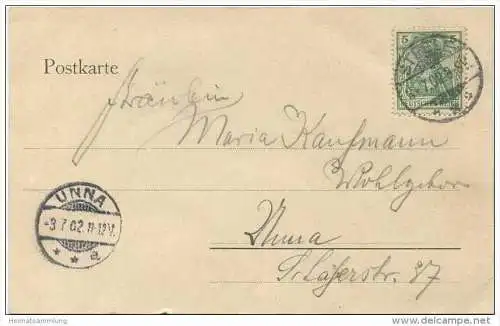 5 5
Postkarte
Fräulein
Maria Kaufmann
Wohlgebor
UNNA
-3.7.02.11-12V.
* * a
Unna
Schäferstr. 37
Heimatsammlung
www.delcampe.net